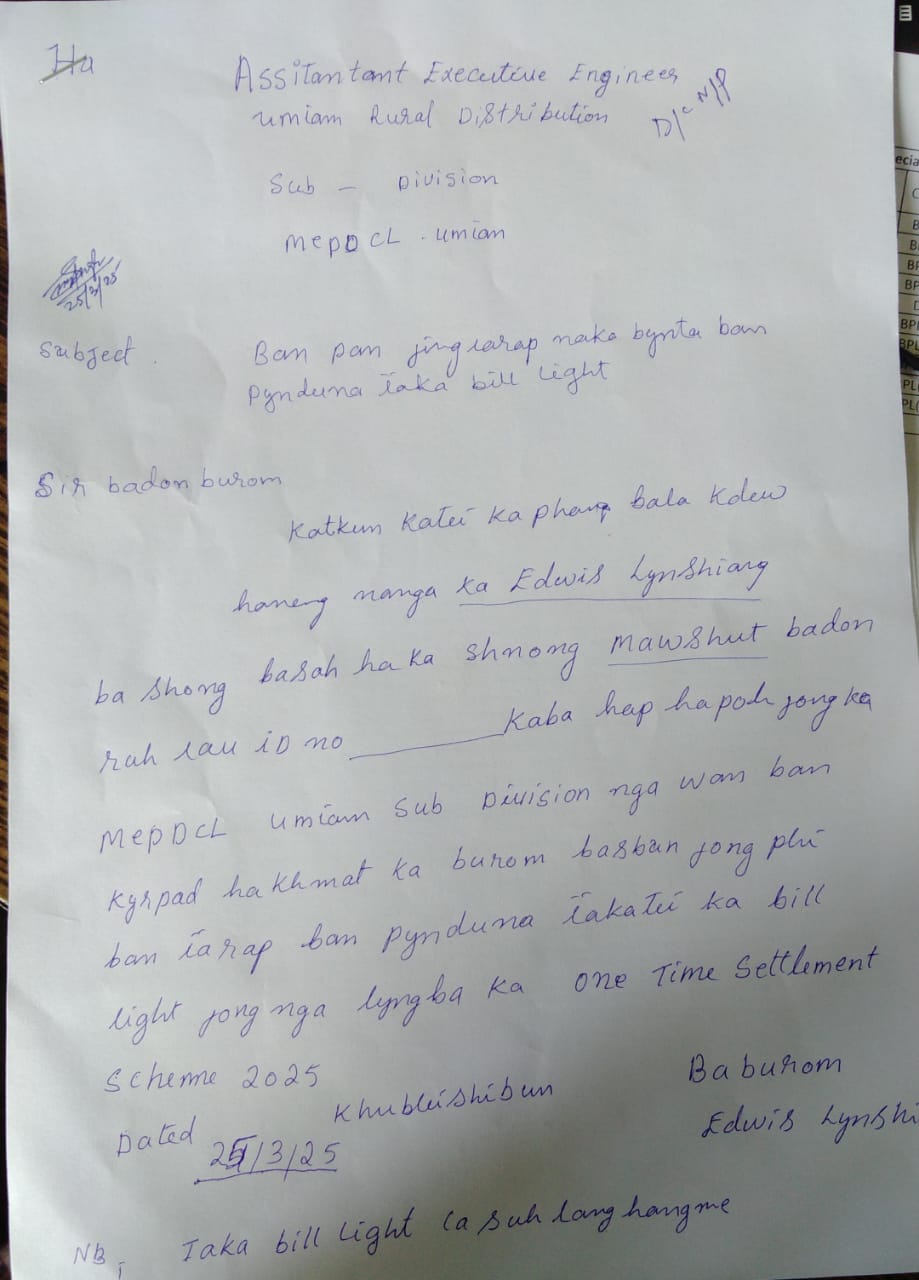 Ha
Assitantant Executive Engineer
umiam Rural Distribution
Sub - Division
MePDCL . umiam
25/3/25
Subject .
Ban pan jingiarap naka bynta ban
Pynduna ïaka bill light
Sir badonburom
Katkum Kateï ka phang bala Kdew
haneng nanga ka Edwis Lynshiang
ba shong basah ha ka shnong Mawshut badon
ruh iau iD no ________ Kaba hap hapoh jong ka
MePDCL umiam Sub Division nga wan ban
Kyrpad ha khmat ka burom basban jong phi
ban ïarap ban Pynduna ïakateï ka bill
light jong nga lyngba ka One Time Settlement
Scheme 2025
Khubleishibun
Baburom
Dated
25/3/25
Edwis Lynshi
NB, Iaka bill light la suh lang hangne